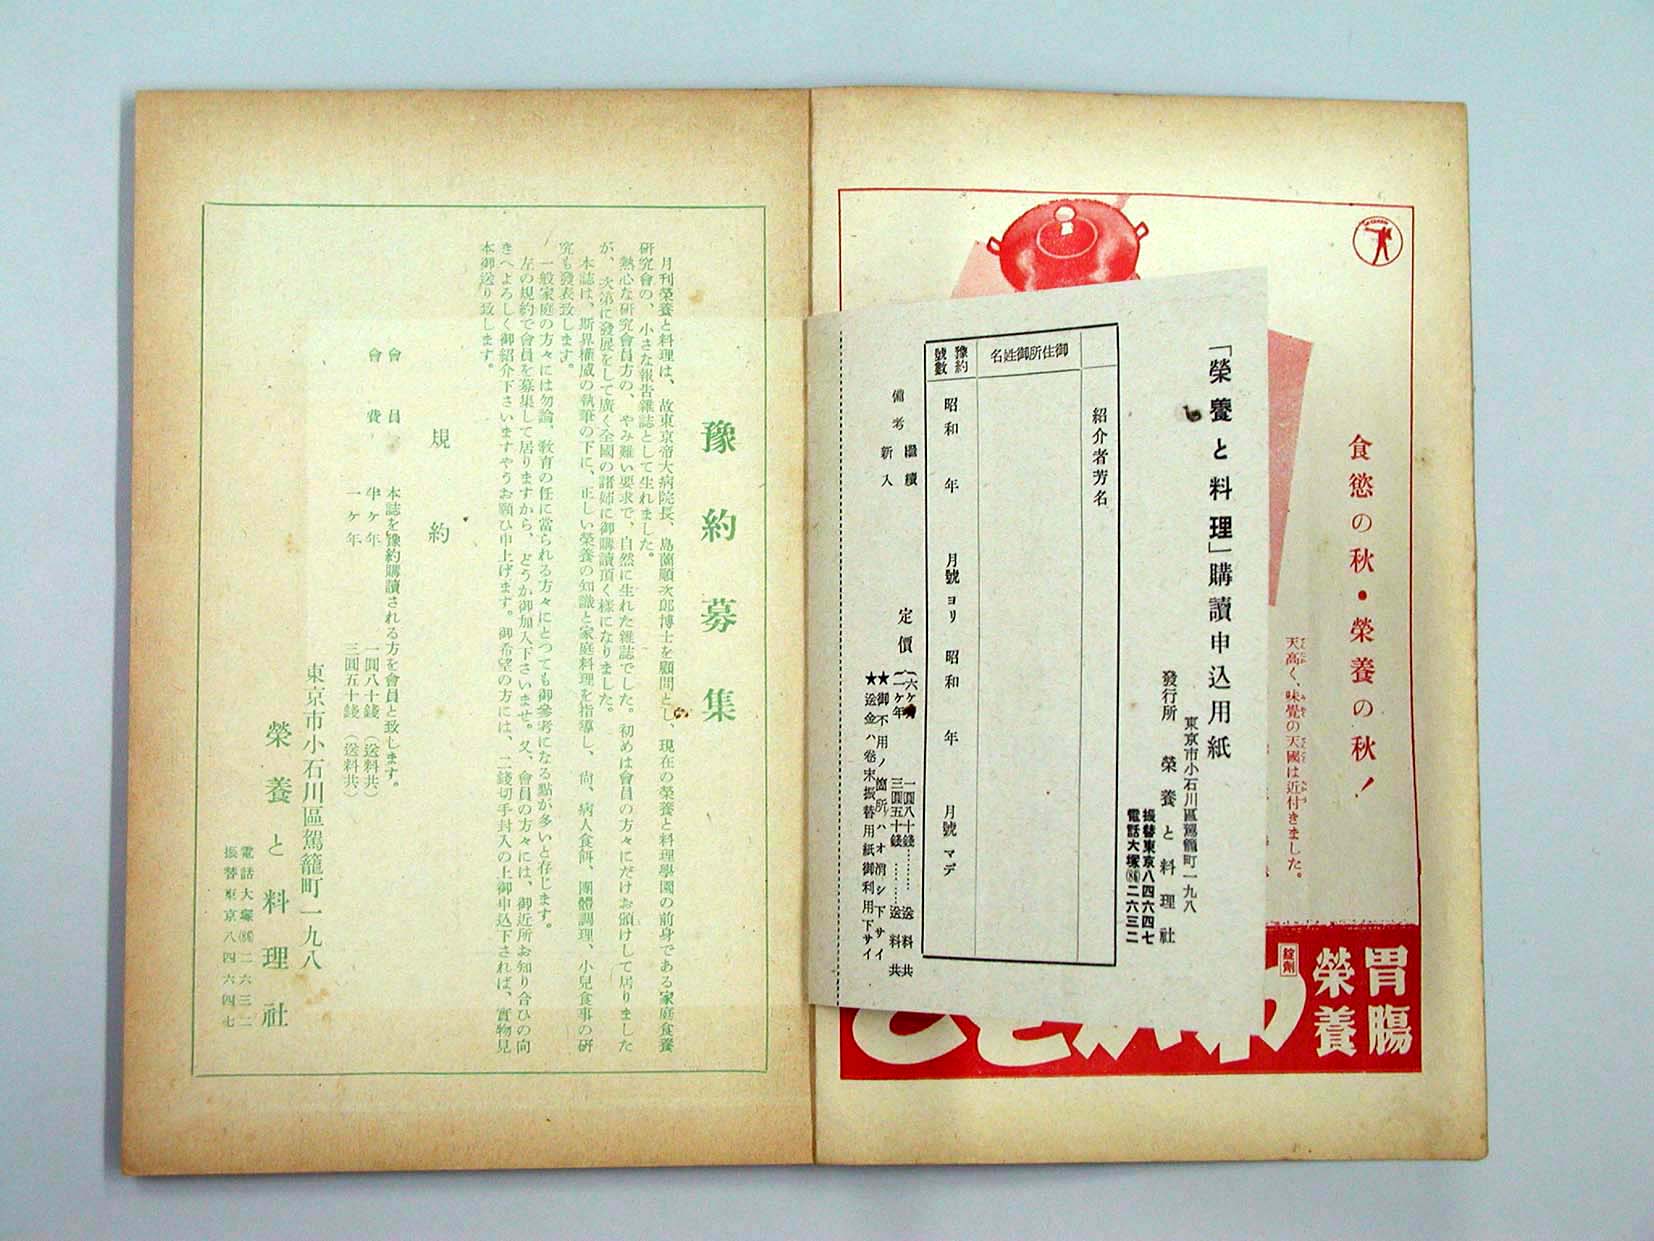 食慾の秋・榮養の秋！
天高く、味覺の天國は近付きました。
胃腸
榮養
錠劑
わかもと
「榮養と料理」購讀申込用紙
東京市小石川區駕籠町一九八
發行所 榮養と料理社
振替東京八四六四七
電話大塚(86)二六三二
紹介者芳名
御住所御姓名
豫約號數
昭和 年 月號ヨリ 昭和 年 月號マデ
備考 繼續 新入
定價
六ヶ月 一圓八十錢……送料共
一ヶ年 三圓五十錢……送料共
★御不用ノ箇所ハオ消シ下サイ
★送金ハ卷末振替用紙御利用下サイ
豫約募集
月刊榮養と料理は、故東京帝大病院長、島薗順次郎博士を顧問とし、現在の榮養と料理學園の前身である家庭食養
研究會の、小さな報告雜誌として生れました。
熱心な研究會員方の、やみ難い要求で、自然に生れた雜誌でした。初めは會員の方々にだけお頒けして居りました
が、次第に發展をして廣く全國の諸姉に御購讀頂く樣になりました。
本誌は、斯界權威の執筆の下に、正しい榮養の知識と家庭料理を指導し、尙、病人食餌、團體調理、小兒食事の硏
究も發表致します。
一般家庭の方々には勿論、敎育の任に當られる方々にとつても御參考になる點が多いと存じます。
左の規約で會員を募集して居りますから、どうか御加入下さいませ。又、會員の方々には、御近所お知り合ひの向
きへよろしく御紹介下さいますやうお願ひ申上げます。御希望の方には、二錢切手封入の上御申込下されば、實物見
本御送り致します。
規約
會員 本誌を豫約購讀される方を會員と致します。
會費 半ヶ年 一圓八十錢（送料共）
一ヶ年 三圓五十錢（送料共）
東京市小石川區駕籠町一九八
榮養と料理社
電話大塚(86)二六三二
振替東京八四六四七